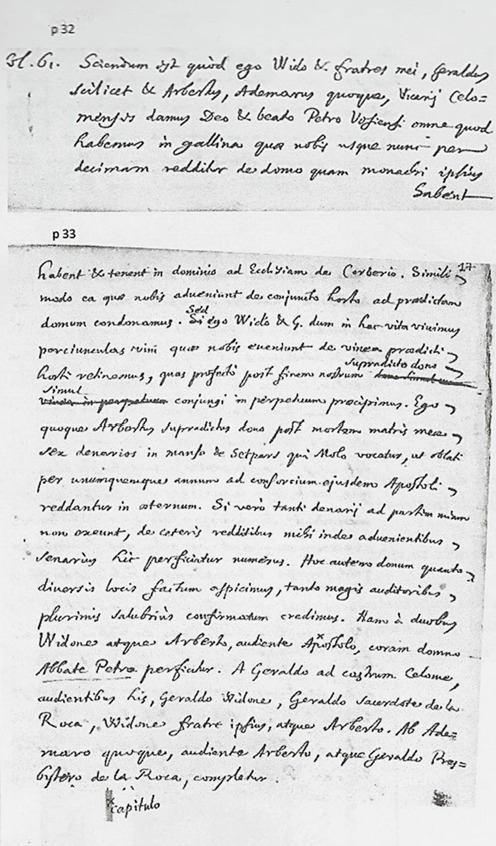 p 32
Bl. 61. Sciendum est quòd ego Wido & fratres mei, Geraldus
scilicet & Arbertus, Ademarus quoque, Vicarij Celo=
mensis damus Deo & beato Petro Vosiensi omne quod
habemus in gallina quæ nobis usque nunc per
decimam redditur de domo quam monachi ipsius
habent
p 33
17
habent & tenent in dominio ad Ecclesiam de Corberio. Simili
modo ea quæ nobis adveniunt de conjuncto horto ad prædictam
domum condonamus. Sed
Si ego Wido & G. dum in hac vita vivimus
perciunculas vini quæ nobis eveniunt de vinea prædicti
horti retinemus, quas profectò post finem nostrum supradicto dono
simul conjungi in perpetuum præcipimus. Ego
quoque Arbertus supradictus dono post mortem matris meæ
sex denarios in manso de Setpars qui Molo vocatur, ut oblati
per unumquemque annum ad consorcium ejusdem Apostoli
reddantur in æternum. Si verò tanti denarij ad partem meam
non exeunt, de ceteris redditibus mihi indes advenientibus
senarius hic perficiatur numerus. Hoc autem donum quanto
diversis locis factum aspicimus, tanto magis auditoribus
plurimis salubriùs confirmatum credimus. Nam à duobus
Widone atque Arberto, audiente Apostolo, coram domno
Abbate Petro perficitur. A Geraldo ad castrum Celome,
audientibus his, Geraldo Widone, Geraldo sacerdote de la
Roca, Widone fratre ipsius, atque Arberto. Ab Ade=
maro quoque, audiente Arberto, atque Geraldo Pres=
bytero de la Roca, completur.
capitulo